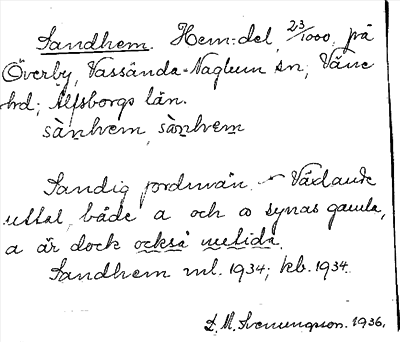 Sandhem. Hem:del 23/1000, på
Överby, Vassända-Naglum sn, Väne
hd; Älfsborgs län.
sànhem, sànhem
Sandig jordmån. Växlande
uttal, både a och ɷ synas gamla,
a är dock också nutida.
Sandhem ml. 1934; kb. 1934.
D. M. Svenungsson. 1936.